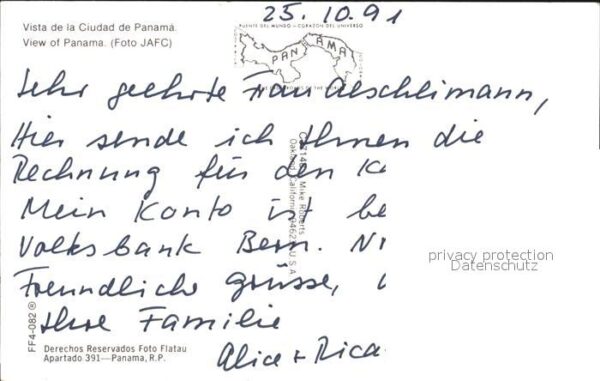 25.10.91
Vista de la Ciudad de Panamá.
View of Panama. (Foto JAFC)
PUENTE DEL MUNDO - CORAZON DEL UNIVERSO
PANAMA
Sehr geehrte Frau Aeschlimann,
Hier sende ich Ihnen die
Rechnung für den K
Mein Konto ist be
Volksbank Bern. N
Freundliche Grüsse,
Ihre Familie
Alice + Rica
Mike Roberts
Oakland, California U S A
privacy protection
Datenschutz
FF4-082 ®
Derechos Reservados Foto Flatau
Apartado 391—Panama, R.P.